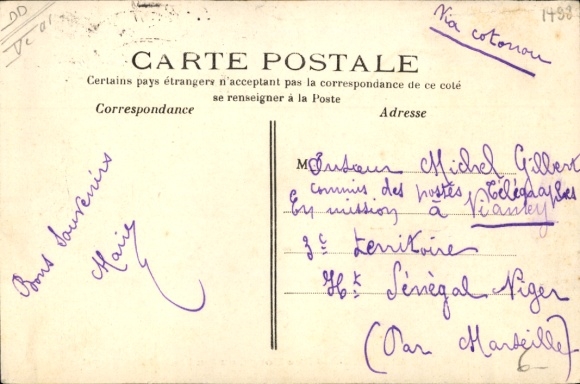 DD
1438
Via cotonou
CARTE POSTALE
Certains pays étrangers n'acceptant pas la correspondance de ce coté
se renseigner à la Poste
Correspondance
Adresse
Bons Souvenirs
Marie
Monsieur Michel Gilbert
commis des postes Télégraphes
En mission à Niamey
3e territoire
Ht Sénégal Niger
(Par Marseille)
6-